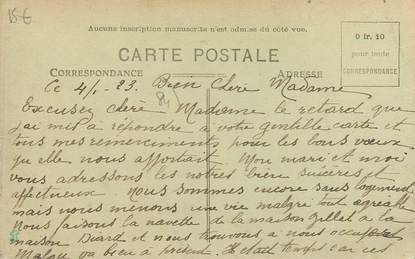 15€
Aucune inscription manuscrite n'est admise du côté vue.
CARTE POSTALE
0 fr. 10
pour toute
CORRESPONDANCE
CORRESPONDANCE
ADRESSE
Ce 4/1-23. Bien chère Madame
Excusez chère Madame le retard que
j'ai mis à répondre a votre gentille carte et
tous mes remerciments pour les bons vœux
qu'elle nous apportait. Mon mari et moi
vous adressons les notres bien sincères et
affectueux nous sommes encore sans logement
mais nous menons une vie malgré tout agréable
Nous faisons la navette de la maison Gillet a la
maison Diard et nous trouvons a nous occuper
va bien à présent. Il était temps car ces